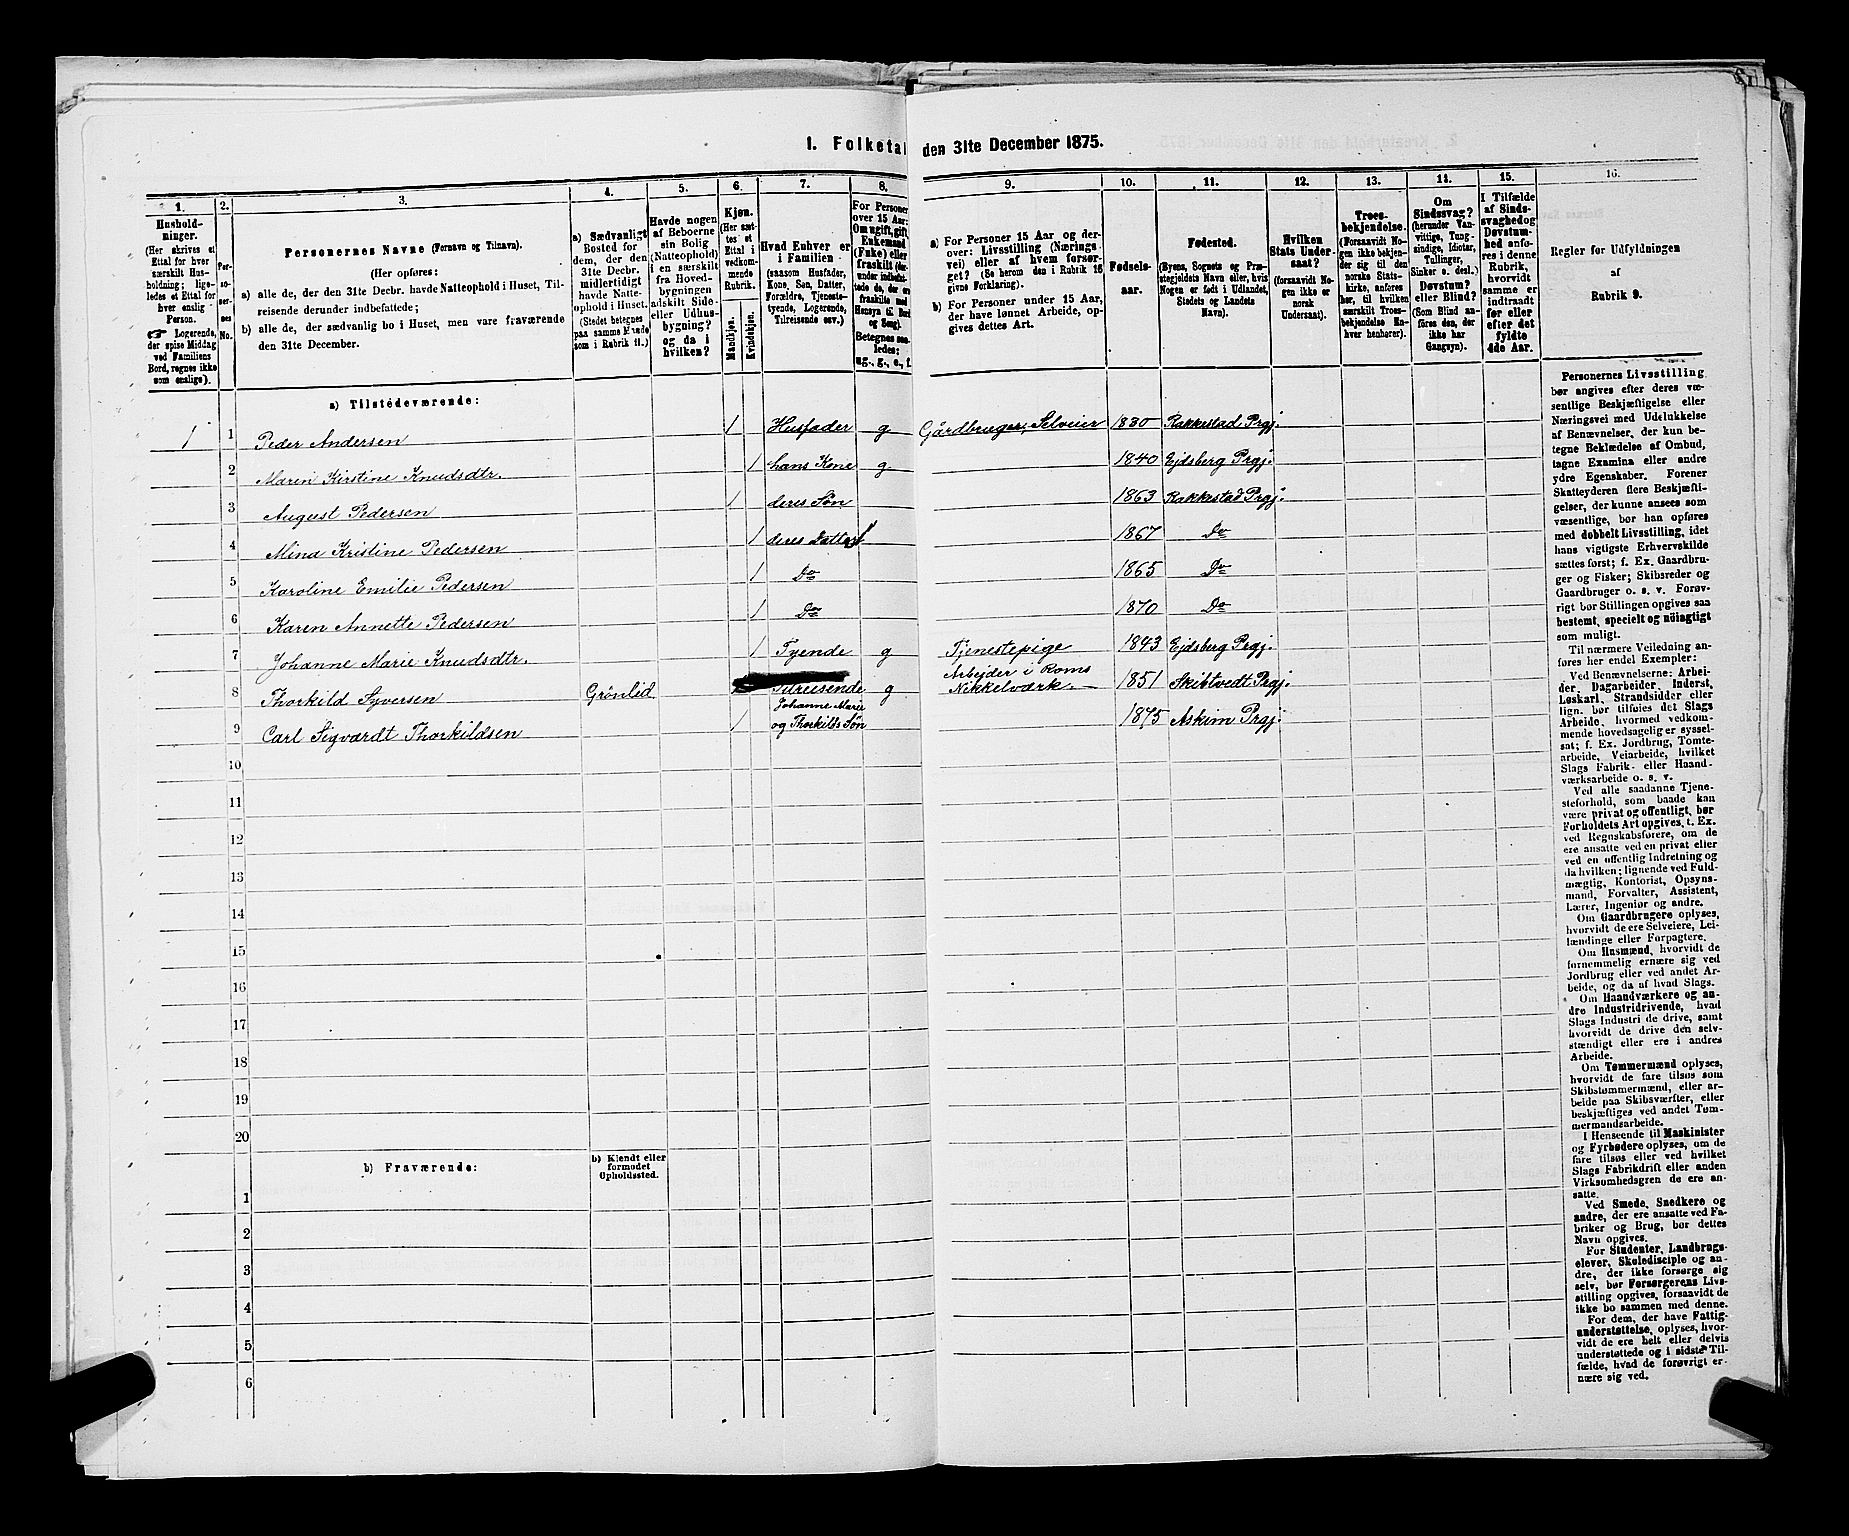 1. Folketal den 31te December 1875.
1.
2.
3.
4.
5.
6.
7.
8.
9.
10.
11.
12.
13.
14.
15.
16.
Hushold-
ninger.
(Her skrives et
Ettal for hver
særskilt Hus-
holdning; lige-
ledes et Ettal for
hver enslig
Person.
☞ Logerende,
der spise Middag
ved Familiens
Bord, regnes ikke
som enslige).
Per-
so-
ner-
nes
No.
Personernes Navne (Fornavn og Tilnavn).
(Her opføres:
a) alle de, der den 31te Decbr. havde Natteophold i Huset, Til-
reisende derunder indbefattede;
b) alle de, der sædvanlig bo i Huset, men vare fraværende
den 31te December.
a) Sædvanligt
Bosted for
dem, der den
31te Decbr.
midlertidigt
havde Natte-
ophold i Huset.
(Stedet betegnes
paa samme Maade
som i Rubrik 11.)
Havde nogen
af Beboerne
sin Bolig
(Natteophold)
i en særskilt
fra Hoved-
bygningen
adskilt Side-
eller Udhus-
bygning?
og da i
hvilken?
Kjøn.
(Her sæt-
tes et
Ettal i
vedkom-
mende
Rubrik.
Mandkjøn.
Kvindekjøn.
Hvad Enhver er
i Familien
(saasom Husfader,
Kone, Søn, Datter,
Forældre, Tjeneste-
tyende, Logerende,
Tilreisende osv.)
For Personer
over 15 Aar:
Om ugift, gift,
Enkemand
(Enke) eller
fraskilt (der-
under indbefat-
tede de, der ere
fraskilte med
Hensyn til Bord
og Seng).
Betegnes saa-
ledes:
ug., g., e., f.
a) For Personer 15 Aar og der-
over: Livsstilling (Nærings-
vei) eller af hvem forsør-
get? (Se herom den i Rubrik 16
givne Forklaring).
b) For Personer under 15 Aar,
der have lønnet Arbeide, op-
gives dettes Art.
Fødsels-
aar.
Fødested.
(Byens, Sognets og Præ-
stegjeldets Navn eller, hvis
Nogen er født i Udlandet,
Stedets og Landets
Navn).
Hvilken
Stats Under-
saat?
(forsaavidt No-
gen ikke er
norsk
Undersaat).
Troes-
bekjendelse.
(Forsaavidt No-
gen ikke bekjen-
der sig til den
norske Stats-
kirke, anføres
her, til hvilken
særskilt Troes-
bekjendelse En-
hver henhører).
Om
Sindssvag?
(herunder Van-
vittige, Tung-
sindige, Idioter,
Tullinger,
Sinker o. desl.)
Døvstum?
eller Blind?
(Som Blind an-
føres den, der
ikke har
Gangsyn).
I Tilfælde
af Sinds-
svaghed og
Døvstum-
hed anfø-
res i denne
Rubrik,
hvorvidt
samme er
indtraadt
før eller
efter det
fyldte
4de Aar.
Regler for Udfyldningen
af
Rubrik 9.
a) Tilstedeværende:
1 1 Peder Andersen 1 Husfader g Gårdbruger, Selveier 1830 Rakkestad Prgj.
2 Maren Kirstine Knudsdtr. 1 hans Kone g 1840 Ejdsberg Prgj.
3 August Pedersen 1 deres Søn 1863 Rakkestad Prgj.
4 Mina Kristine Pedersen 1 deres Datter 1867 Do
5 Karoline Emilie Pedersen 1 Do 1865 Do
6 Karen Annette Pedersen 1 Do 1870 Do
7 Johanne Marie Knudsdtr. 1 Tyende g Tjenestepige 1843 Ejdsberg Prgj.
8 Thorkild Syversen Grönlid Tilreisende g Arbejder i Roms
Nikkelværk. 1851 Skibtvedt Prgj.
9 Carl Sigvardt Thorkildsen 1 Johanne Marie
og Thorkilds Søn 1875 Askim Prgj.
10
11
12
13
14
15
16
17
18
19
20
b) Fraværende:
b) Kjendt eller
formodet
Opholdssted.
1
2
3
4
5
6
Personernes Livsstilling
bør angives efter deres væ-
sentlige Beskjæftigelse eller
Næringsvei med Udelukkelse
af Benævnelser, der kun be-
tegne Beklædelse af Ombud,
tagne Examina eller andre
ydre Egenskaber. Forener
Skatteyderen flere Beskjæfti-
gelser, der kunne ansees som
væsentlige, bør han opføres
med dobbelt Livsstilling, idet
hans vigtigste Erhvervskilde
sættes først; f. Ex. Gaardbru-
ger og Fisker; Skibsreder og
Gaardbruger o. s. v. Forøv-
rigt bør Stillingen opgives saa
bestemt, specielt og nöiagtigt
som muligt.
Til nærmere Veiledning an-
føres her endel Exempler:
Ved Benævnelserne: Arbei-
der, Dagarbeider, Inderst,
Løskarl, Strandsidder eller
lign. bør tilføies det Slags
Arbeide, hvormed vedkom-
mende hovedsagelig er syssel-
sat; f. Ex. Jordbrug, Tomte-
arbeide, Veiarbeide, hvilket
Slags Fabrik- eller Haand-
værksarbeide o. s. v.
Ved alle saadanne Tjene-
steforhold, som baade kan
være privat og offentligt, bør
Forholdets Art opgives, t. Ex.
ved Regnskabsførere, om de
ere ansatte ved en privat eller
ved en offentlig Indretning og
da hvilken; lignende ved Fuld-
mægtig, Kontorist, Opsyns-
mand, Forvalter, Assistent,
Lærer, Ingeniør og andre.
Om Gaardbrugere oplyses,
hvorvidt de ere Selveiere, Lei-
lændinge eller Forpagtere.
Om Husmænd, hvorvidt de
fornemmelig ernære sig ved
Jordbrug eller ved andet Ar-
beide, og da af hvad Slags.
Om Haandværkere og an-
dre Industridrivende, hvad
Slags Industri de drive, samt
hvorvidt de drive den selv-
stændigt eller ere i andres
Arbeide.
Om Tømmermænd oplyses,
hvorvidt de fare tilsøs som
Skibstømmermænd, eller ar-
beide paa Skibsværfter, eller
beskjæftiges ved andet Tøm-
mermandsarbeide.
I Henseende til Maskinister
og Fyrbødere oplyses, om de
fare tilsøs eller ved hvilket
Slags Fabrikdrift eller anden
Virksomhedsgren de ere an-
satte.
Ved Smede, Snedkere og
andre, der ere ansatte ved Fa-
briker og Brug, bør dettes
Navn opgives.
For Studenter, Landbrugs-
elever, Skoledisciple og an-
dre, der ikke forsørge sig
selv, bør Forsørgerens Livs-
stilling opgives, forsaavidt de
ikke bo sammen med denne.
For dem, der have Fattig-
understøttelse, oplyses, hvor-
vidt de ere helt eller delvis
understøttede og i sidste Til-
fælde, hvad de forøvrigt er-
nære sig ved.